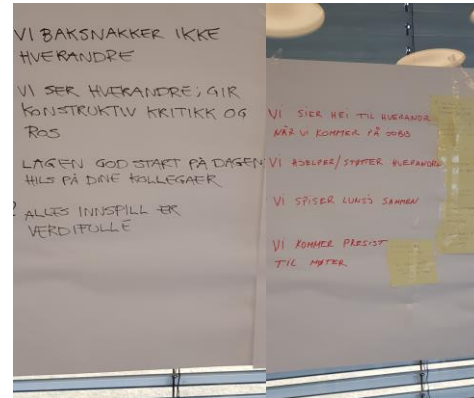 VI BAKSNAKKER IKKE
HVERANDRE
VI SER HVERANDRE; GIR
KONSTRUKTIV KRITIKK OG
ROS
LAGEN GOD START PÅ DAGEN
HILS PÅ DINE KOLLEGAER
ALLES INNSPILL ER
VERDIFULLE
VI SIER HEI TIL HVERANDR
NÅR VI KOMMER PÅ JOBB
VI HJELPER/STØTTER HVERANDR
VI SPISER LUNSJ SAMMEN
VI KOMMER PRESIST
TIL MØTER